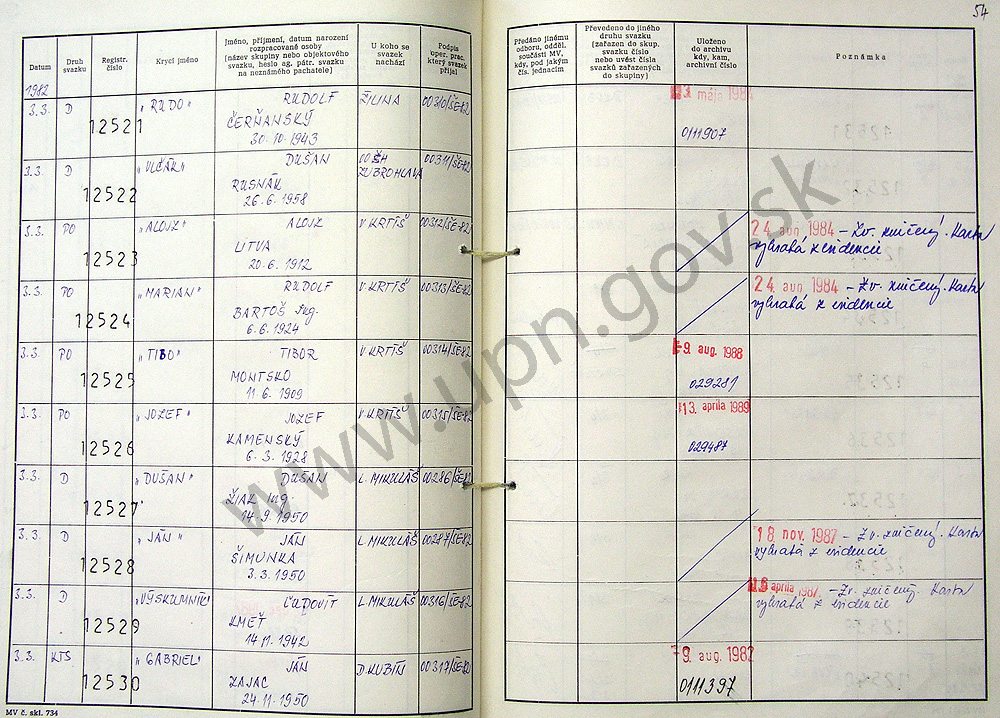 54
Datum
Druh svazku
Registr. číslo
Krycí jméno
Jméno, příjmení, datum narození rozpracované osoby (název skupiny nebo objektového svazku, heslo ag. pátr. svazku na neznámého pachatele)
U koho se svazek nachází
Podpis oper. prac. který svazek přijal
Předáno jinému odboru, odděl. součásti MV, kdy, pod jakým čís. jednacím
Převedeno do jiného druhu svazku (zařazen do skup. svazku číslo nebo uvést čísla svazků zařazených do skupiny)
Uloženo do archivu kdy, kam, archivní číslo
Poznámka
1982
3.3. D 12521 "RUDO" RUDOLF ŽILINA 00310/ŠE-82 3. mája 1984
ČERŇANSKÝ
30.10.1943 0111907
3.3. D 12522 "VLČÁK" DUŠAN OO ŠH 00311/ŠE-82
RUSNÁK ZUBROHLAVA
26.6.1958
3.3. PO 12523 "ALOJZ" ALOJZ V. KRTÍŠ 00312/ŠE-82 24. aug 1984 – Zv. zničený. Karta
LITVA vybratá z evidencie
20.6.1912
3.3. PO 12524 "MARIAN" RUDOLF V. KRTÍŠ 00313/ŠE-82 24. aug 1984 – Zv. zničený. Karta
BARTOŠ Ing. vybratá z evidencie
6.6.1924
3.3. PO 12525 "TIBO" TIBOR V. KRTÍŠ 00314/ŠE-82 9. aug. 1988
MONTSKO 029281
11.6.1909
3.3. PO 12526 "JOZEF" JOZEF V. KRTÍŠ 00315/ŠE-82 13. apríla 1989
KAMENSKÝ 029487
6.3.1928
3.3. D 12527 "DUŠAN" DUŠAN L. MIKULÁŠ 00286/ŠE-82
ŽIAK Ing.
14.9.1950
3.3. D 12528 "JÁN" JÁN L. MIKULÁŠ 00287/ŠE-82 18. nov. 1987 – Zv. zničený. Karta
ŠIMUNKA vybratá z evidencie
3.3.1950
3.3. D 12529 "VÝSKUMNÍK" ĽUDOVÍT L. MIKULÁŠ 00316/ŠE-82 apríla 1987 – Zv. zničený. Karta
KMEŤ vybratá z evidencie
14.11.1942
3.3. KTS 12530 "GABRIEL" JÁN D. KUBÍN 00317/ŠE-82 9. aug. 1982
ZAJAC 0111397
24.11.1950
MV č. skl. 734
www.upn.gov.sk